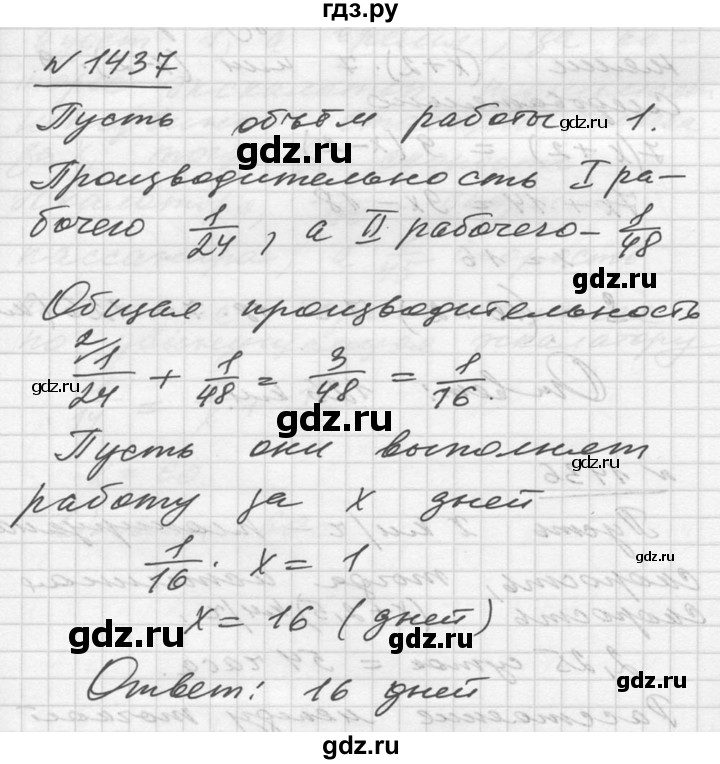 гдз.ру
№ 1437
Пусть объём работы 1.
Производительность I ра-
бочего 1/24, а II рабочего - 1/48
Общая производительность
2/ 1/24 + 1/48 = 3/48 = 1/16.
Пусть они выполнят
работу за x дней
1/16 · x = 1
x = 16 (дней)
Ответ: 16 дней
gdz.ru
gdz.ru
gdz.ru
gdz.ru
gdz.ru
gdz.ru
gdz.ru
gdz.ru
gdz.ru
gdz.ru
gdz.ru
gdz.ru